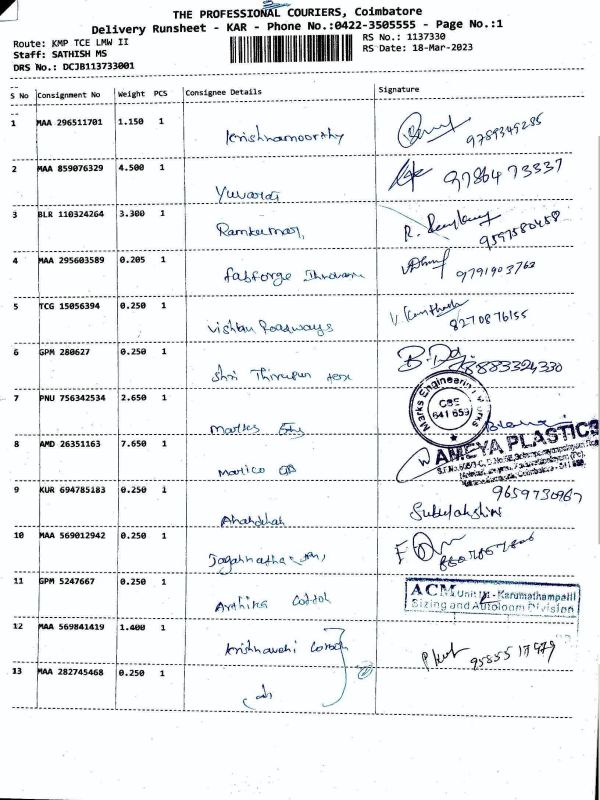 THE PROFESSIONAL COURIERS, Coimbatore
Delivery Runsheet - KAR - Phone No.:0422-3505555 - Page No.:1
Route: KMP TCE LMW II
RS No.: 1137330
Staff: SATHISH MS
RS Date: 18-Mar-2023
DRS No.: DCJB113733001
S No Consignment No Weight PCS Consignee Details Signature
1 MAA 296511701 1.150 1 Krishnamoorthy 9789349285
2 MAA 859076329 4.500 1 Yuvaraj 9786473337
3 BLR 110324264 3.300 1 Ramkumar, R. 9597580458
4 MAA 295603589 0.205 1 fabforge 9791903763
5 TCG 15056394 0.250 1 Vishnu Roadways V. 8270876155
6 GPM 280627 0.250 1 Shri Thirupur texx 8883324330
7 PNU 756342534 2.650 1 Markes
Marks Engineering Works
CBE
641 659
8 AMD 26351163 7.650 1 Marico
AMEYA PLASTICS
9 KUR 694785183 0.250 1 9659730967
10 MAA 569012942 0.250 1 Jagannatha
11 GPM 5247667 0.250 1 Arthika Cotton
ACM Unit III - Karumathampatti
Sizing and Autoloom Division
12 MAA 569841419 1.400 1
13 MAA 282745468 0.250 1